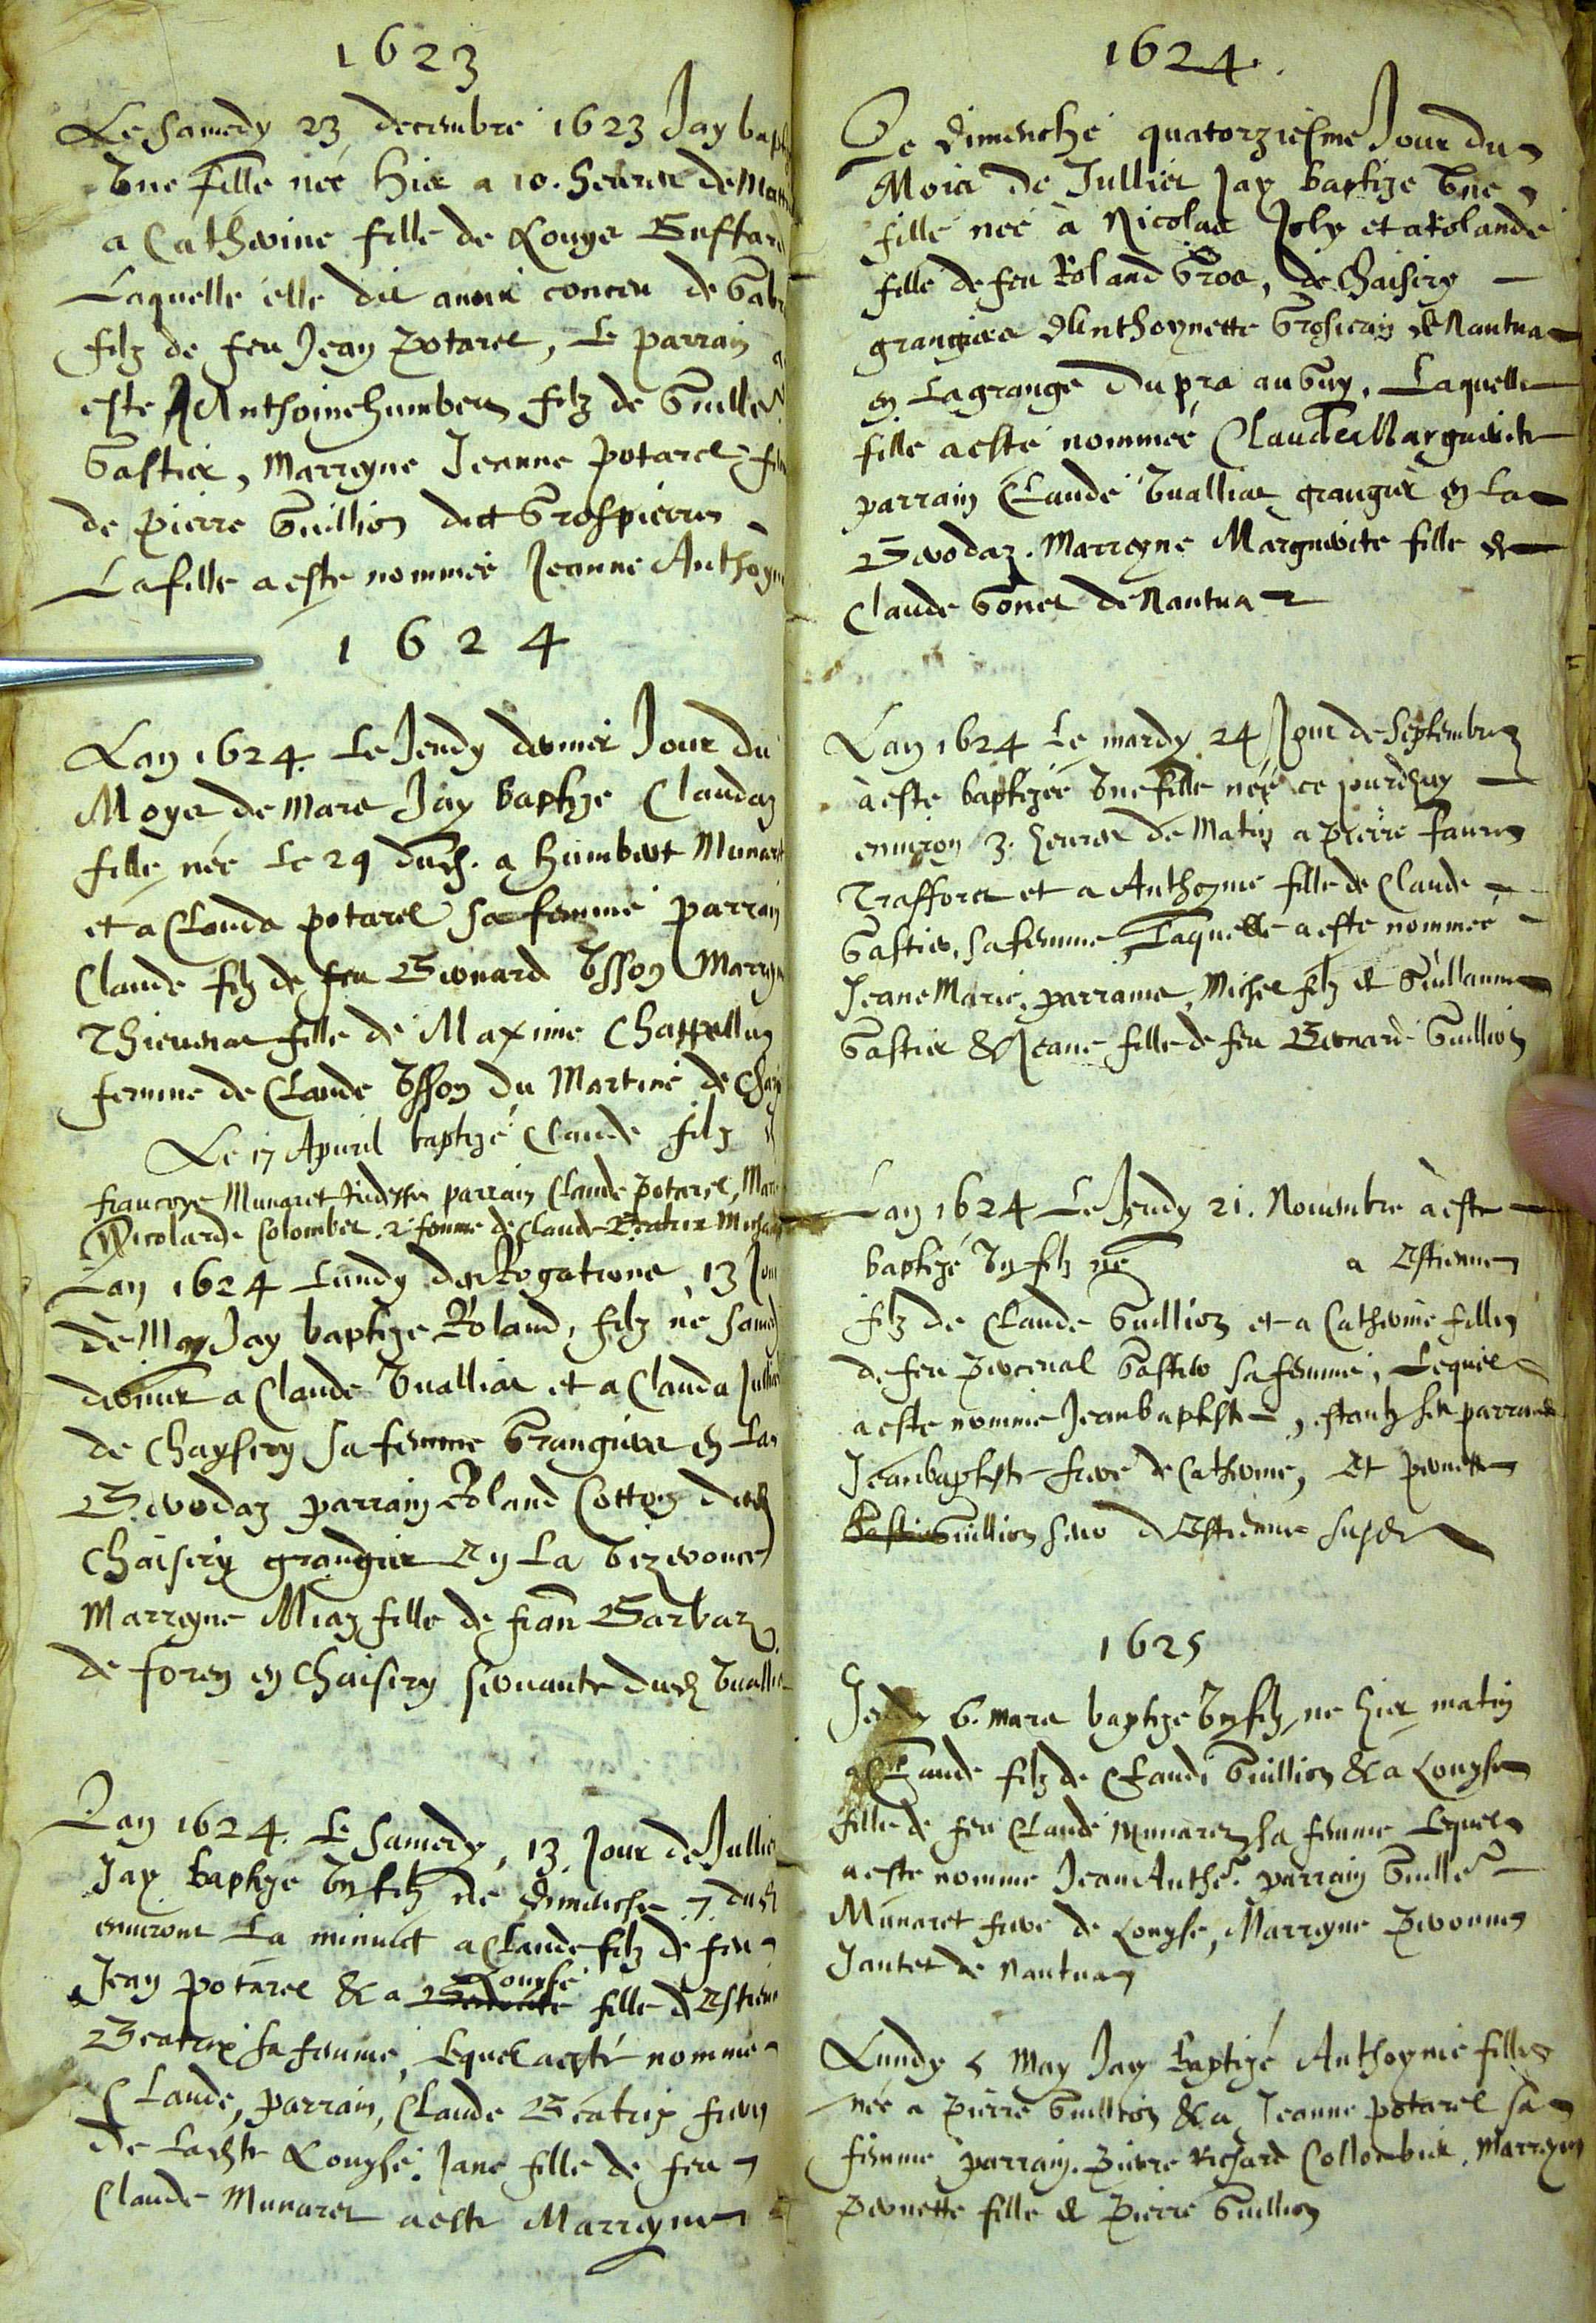 1623
Le samedy 23 decembre 1623 Jay bapt
Une fille née hier a 10. heures de Mat
a Catherine fille de Louys Gustard
Laquelle elle dit avoir conceu de Gab
filz de feu Jean Potarel, Le parrain a
este Anthoine humbert filz de Guille
Gastier, Marreyne Jeanne Potarel
de pierre Guillion dict Grospierre
La fille a este nommée Jeanne Anthoyn
1624
Lan 1624. Le Jeudy dernier Jour du
Moys de Mars Jay baptize Claudaz
fille née Le 29 dud. a humbert Munaret
et a Clauda potarel sa femme parrain
Claude filz de feu Bernard Usson Marryn
Thievenaz fille de Maxime Chappelluz
femme de Claude Usson du Martinè de Char
Le 17 Apvril baptizé Claude filz d
francoys Munaret parrain Claude Potarel, Mar
Nicolarde Colombet. 2e femme de Claude Beatrix
Lan 1624 Lundy des Rogations 13 Jou
de May Jay baptize Roland, filz né samedy
dernier a Claude Vuallias et a Clauda Jullia
de Chaysery sa femme Grangiers en La
Gevodaz parrain Roland Cotton dud
Chaisery grangier En La
Marreyne Miaz fille de Barbaz
de foren en Chaisery servante dud Vuallias
Lan 1624. Le samedy, 13. Jour de Jullie
Jay baptize Un filz né dimanche .7. dud
environ La minuict a Claude filz de feu
Jean potarel & a Louyse fille d'Estienne
Beatrix sa femme, Lequel a esté nommé
Claude, parrain, Claude Beatrix frere
de Ladite Louyse. Jane fille de feu
Claude Munaret a este Marreyne
1624.
Le Dimenche quatorziesme Jour du
Mois de Jullier Jay baptize Une
fille née à Nicolas Joly et a Yolande
fille de feu Roland Gros, de Chaisery
grangiers d'Anthoynette Grosierain de Nantua
en La grange du pra au Guy. Laquelle
fille a esté nommée Claude Marguerite
parrain Claude Vuallias grangier en La
Gevodaz. Marreyne Marguerite fille de
Claude Gonet de Nantua
Lan 1624 Le mardy 24 Jour de Septembre
à este baptizée Une fille née ce jourdhuy
environ 3. heures de Matin a Pierre Favre
Traffort et a Anthoyne fille de Claude
Gastier. sa femme Laquelle a este nommée
Jeane Marie. parrains, Michel filz de Guillaume
Gastier & Jeane fille de feu Bernard Guillion
Lan 1624 Le Jeudy 21. Novembre à este
baptizé Un filz né a Estienne
filz de Claude Guillion et a Catherine fille
de feu perceval Gastier sa femme, Lequel
a este nomme Jean baptiste, estantz ses parrains
Jean baptiste frere de Catherine, Et pernette
Guillion seur d'Estienne susd
1625
Jeudy 6. mars baptize Un filz ne hier matin
a Claude filz de Claude Guillion & a Louyse
fille de feu Claude Munaret sa femme Lequel
a este nomme Jean Anthe. parrain Guille
Munaret frere de Louyse, Marreyne Pernonne
Jantet de Nantua
Lundy 5 May Jay baptizé Anthoynie fille
née a Pierre Guillion & a Jeanne potarel sa
femme parrain. Pierre Richard Collombier. Marreyne
Pernette fille de Pierre Guillion